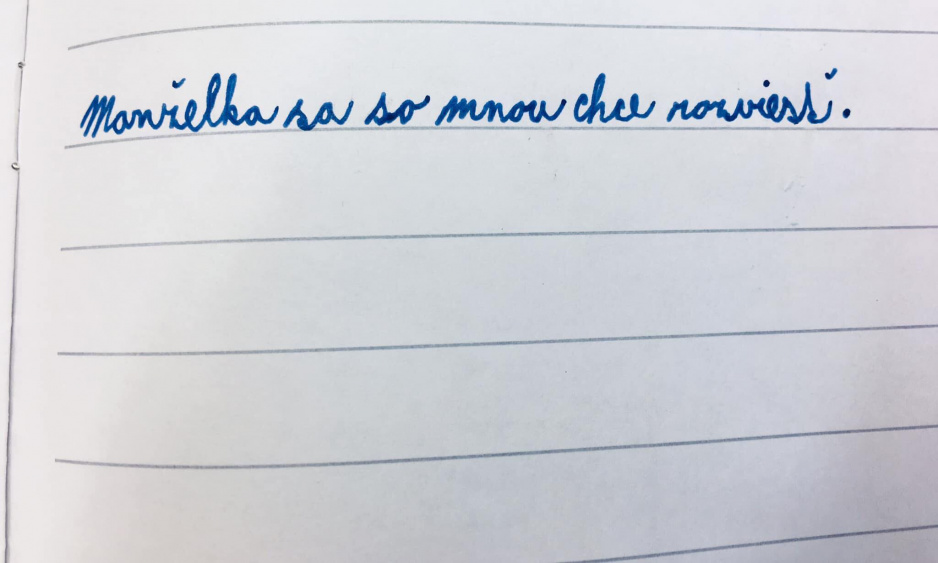 Manželka sa so mnou chce rozviesť.